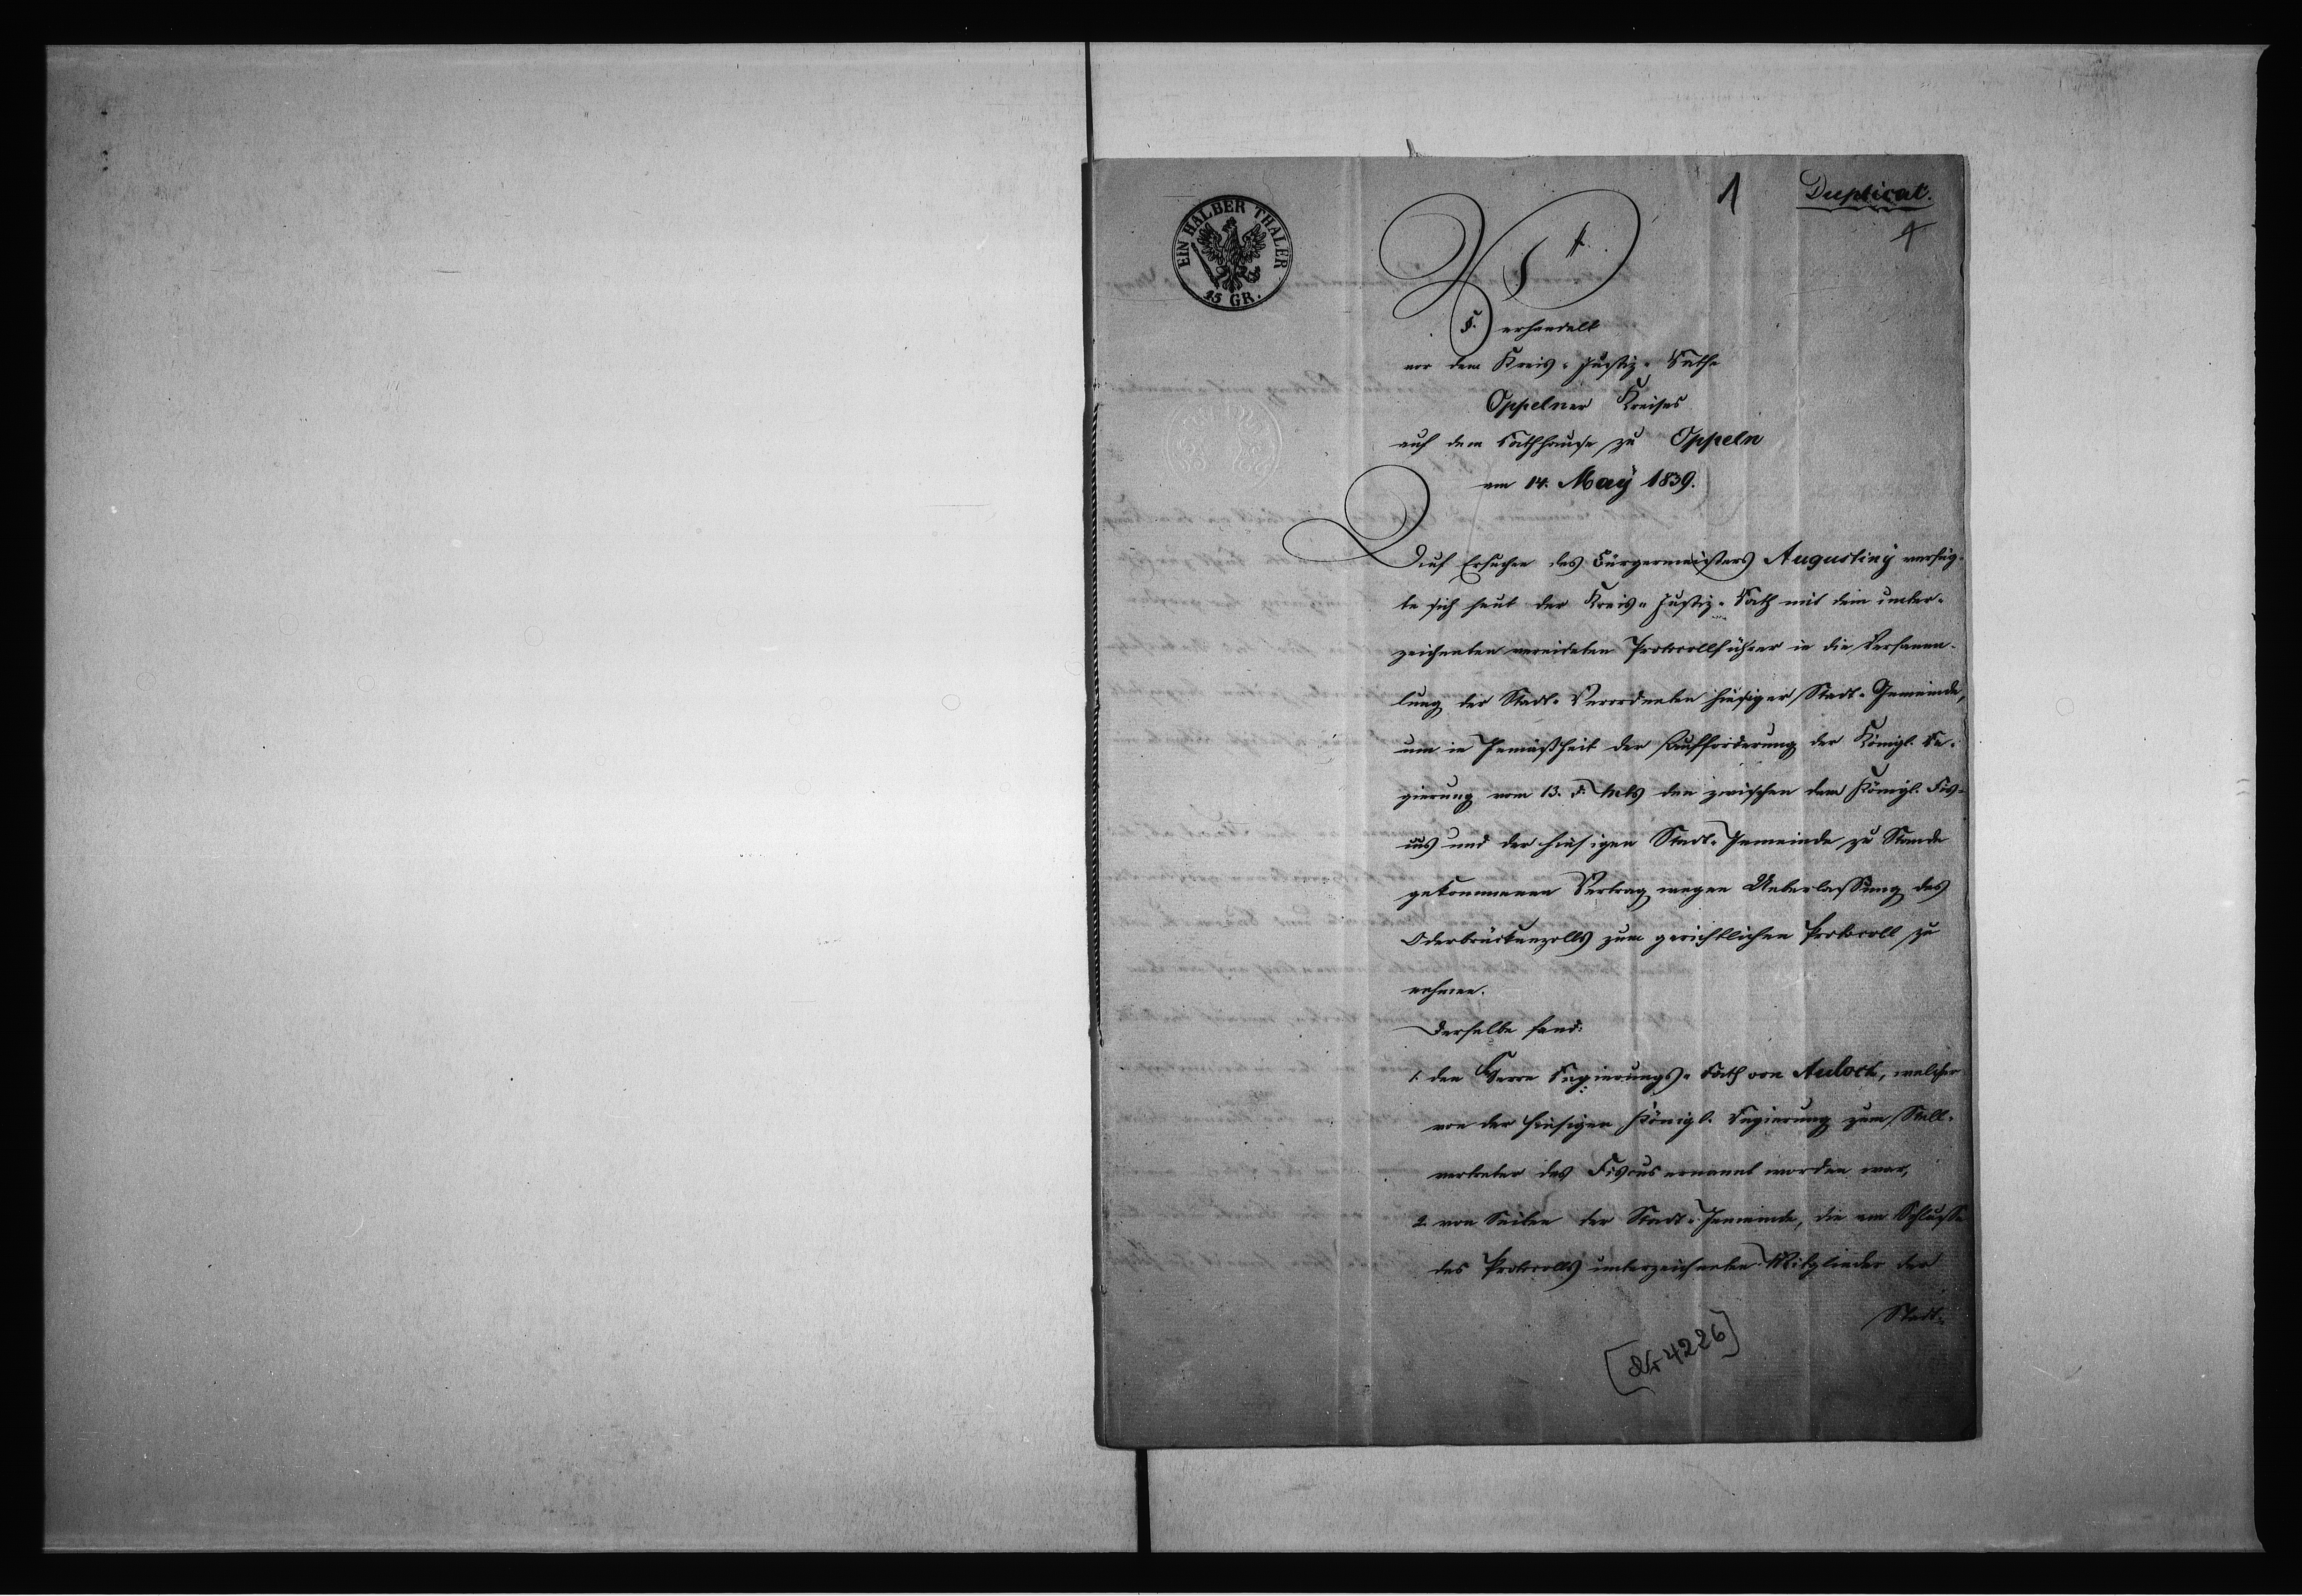 1
Duplicat.
1
EIN HALBER THALER
15 GR.
Verhandelt
vor dem Kreis-Justiz-Rathe
Oppelner Kreises
auf dem Rathhause zu Oppeln
am 14. May 1839.
Auf Ersuchen des Bürgermeisters Augustiny verfüg-
te sich heut der Kreis-Justiz-Rath mit dem unter-
zeichneten vereideten Protocollführer in die Versamm-
lung der Stadt-Verordneten hiesiger Stadt-Gemeinde,
um in Gemäßheit der Aufforderung der Königl. Re-
gierung vom 13. d. Mts den zwischen dem Königl. Fis-
cus und der hiesigen Stadt-Gemeinde zu Stande
gekommenen Vertrag wegen Ueberlassung des
Oderbrückenzolls zum gerichtlichen Protocoll zu
nehmen.
Derselbe fand:
1. den Herrn Regierungs-Rath von Aulock, welcher
von der hiesigen Königl. Regierung zum Stell-
vertreter des Fiscus ernannt worden war,
2. von Seiten der Stadt-Gemeinde, die am Schlusse
des Protocolls unterzeichneten Mitglieder der
Stadt-
[Nr 4226]